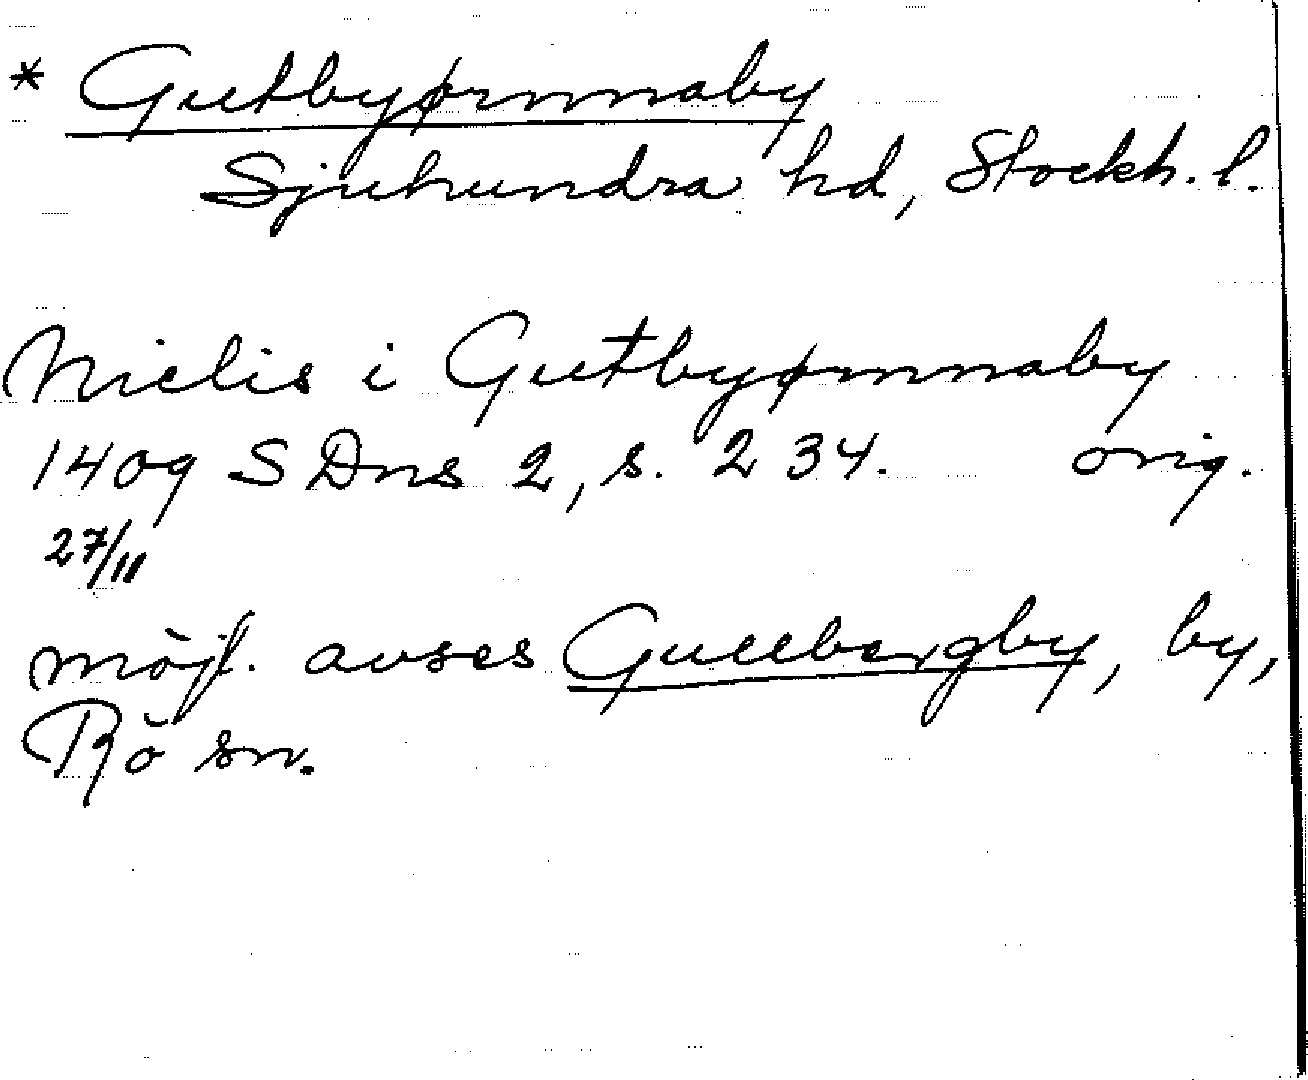 * Gutbyørnnaby
Sjuhundra hd, Stockh. l.
Nielis i Gutbyørnnaby
1409 SDns 2, s. 234. orig.
27/11
möjl. avses Gullbergby, by,
Rö sn.